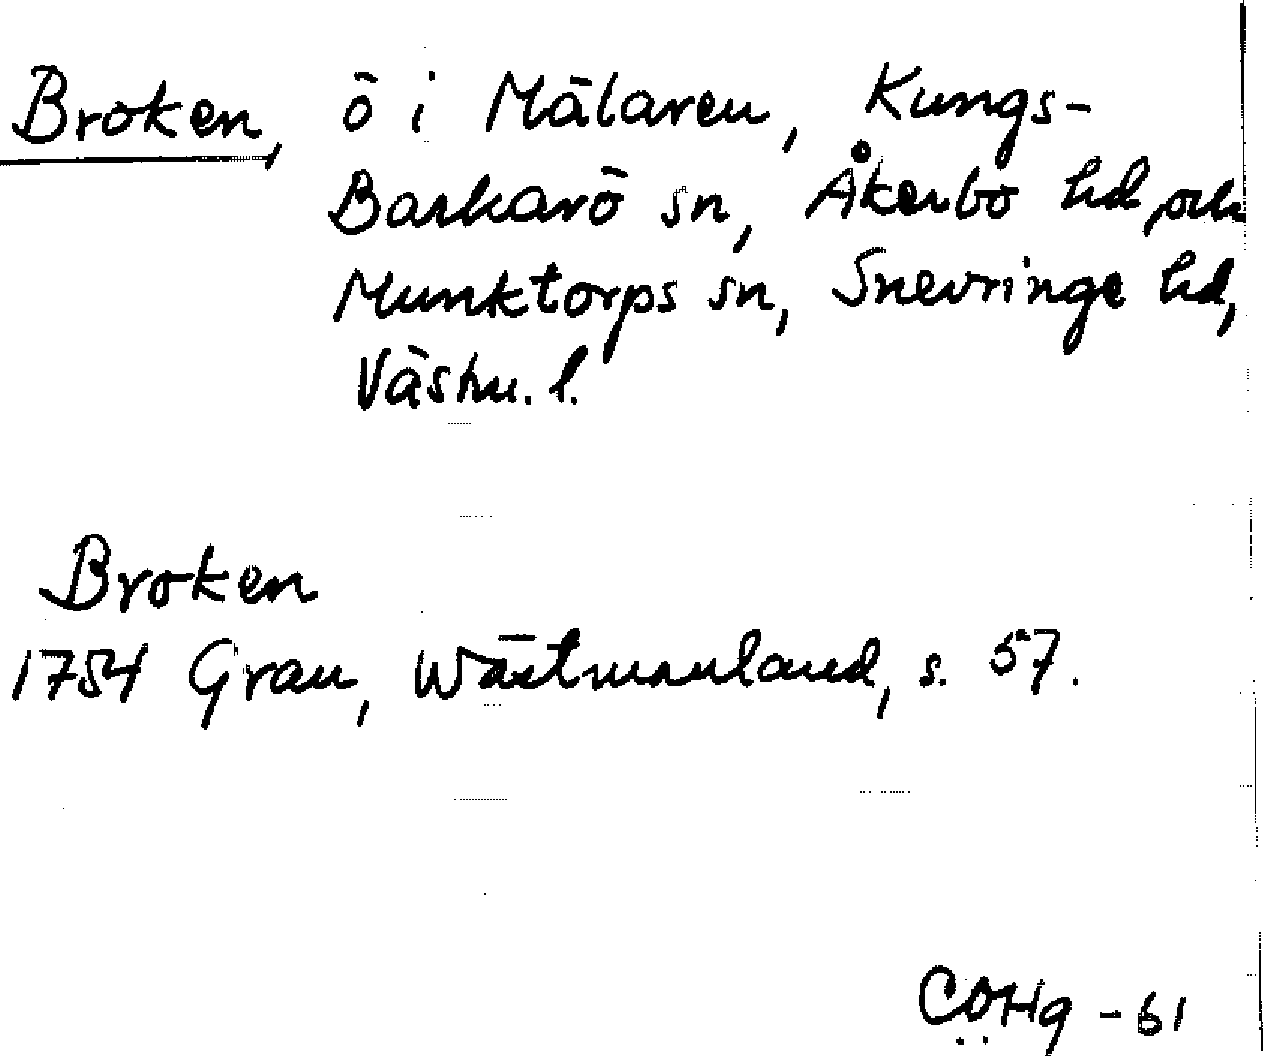 Broken, ö i Mälaren, Kungs-
Barkarö sn, Åkerbo hd, och
Munktorps sn, Snevringe hd,
Västm. l.
Broken
1754 Grau, Wästmanland, s. 57.
CÖHg - 61